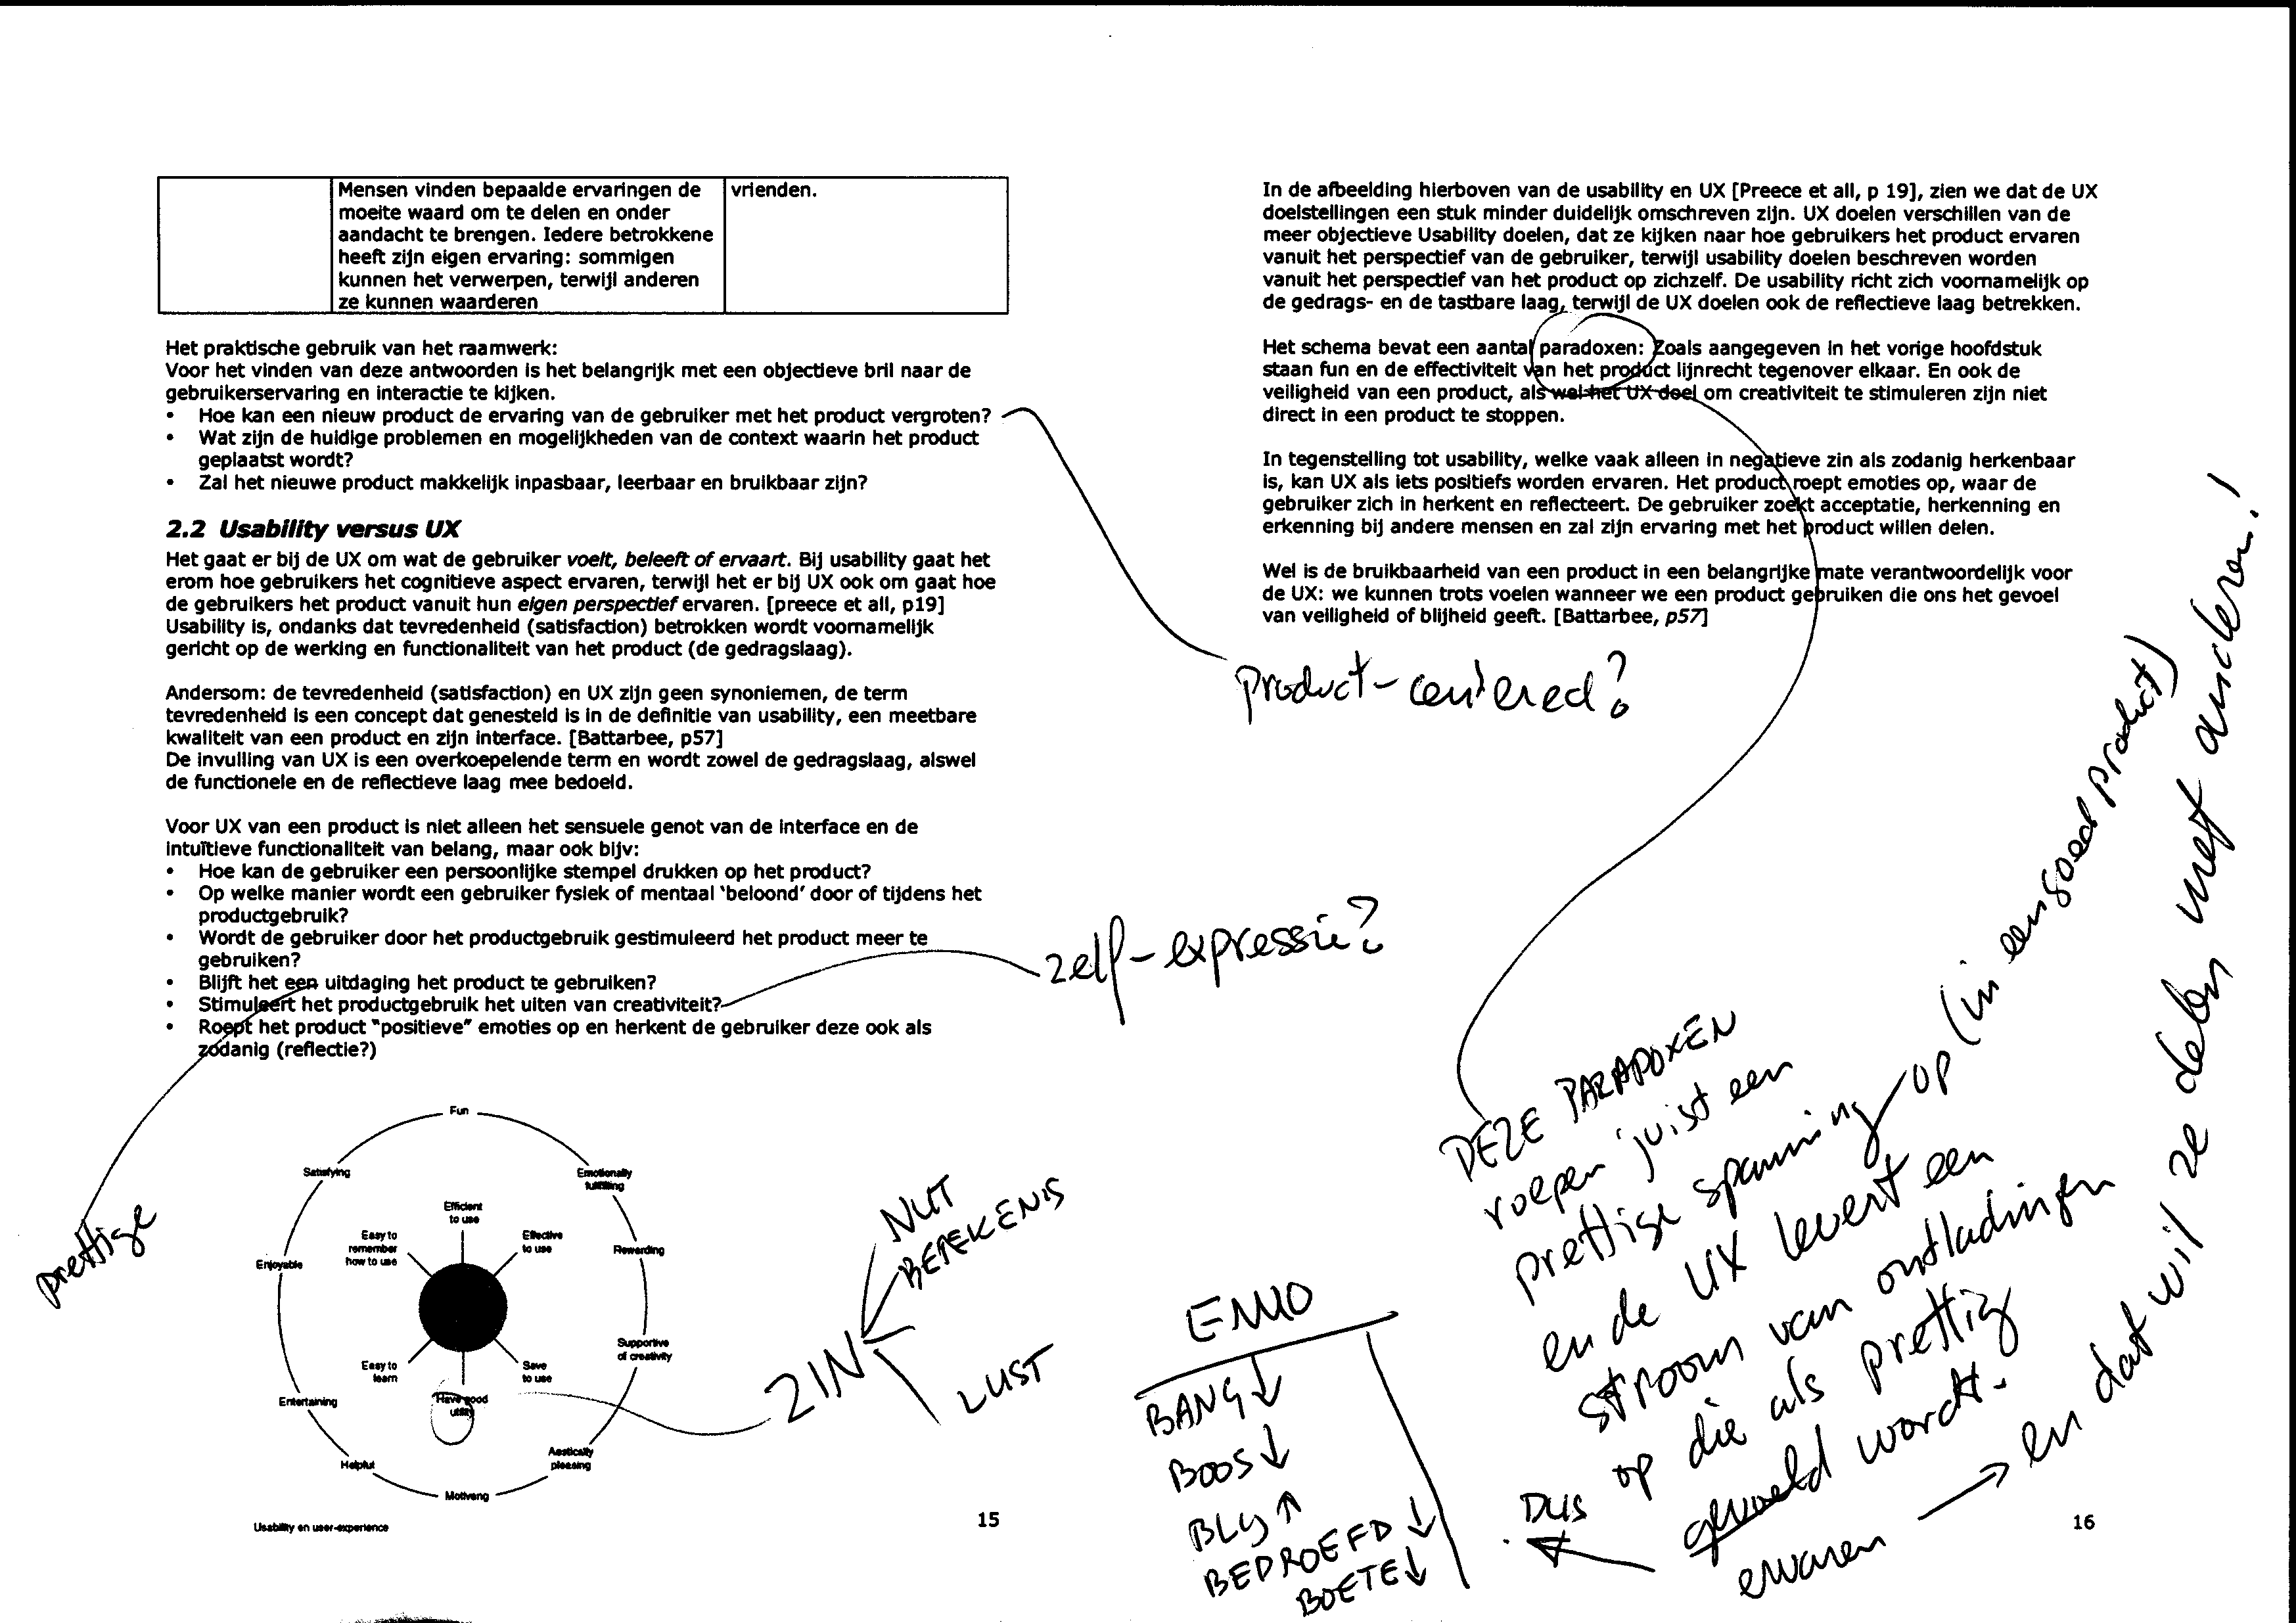 Mensen vinden bepaalde ervaringen de
moeite waard om te delen en onder
aandacht te brengen. Iedere betrokkene
heeft zijn eigen ervaring: sommigen
kunnen het verwerpen, terwijl anderen
ze kunnen waarderen
vrienden.
Het praktische gebruik van het raamwerk:
Voor het vinden van deze antwoorden is het belangrijk met een objectieve bril naar de
gebruikerservaring en interactie te kijken.
• Hoe kan een nieuw product de ervaring van de gebruiker met het product vergroten?
• Wat zijn de huidige problemen en mogelijkheden van de context waarin het product
geplaatst wordt?
• Zal het nieuwe product makkelijk inpasbaar, leerbaar en bruikbaar zijn?
2.2 Usability versus UX
Het gaat er bij de UX om wat de gebruiker voelt, beleeft of ervaart. Bij usability gaat het
erom hoe gebruikers het cognitieve aspect ervaren, terwijl het er bij UX ook om gaat hoe
de gebruikers het product vanuit hun eigen perspectief ervaren. [preece et all, p19]
Usability is, ondanks dat tevredenheid (satisfaction) betrokken wordt voornamelijk
gericht op de werking en functionaliteit van het product (de gedragslaag).
Andersom: de tevredenheid (satisfaction) en UX zijn geen synoniemen, de term
tevredenheid is een concept dat genesteld is in de definitie van usability, een meetbare
kwaliteit van een product en zijn interface. [Battarbee, p57]
De invulling van UX is een overkoepelende term en wordt zowel de gedragslaag, alswel
de functionele en de reflectieve laag mee bedoeld.
Voor UX van een product is niet alleen het sensuele genot van de interface en de
intuïtieve functionaliteit van belang, maar ook bijv:
• Hoe kan de gebruiker een persoonlijke stempel drukken op het product?
• Op welke manier wordt een gebruiker fysiek of mentaal 'beloond' door of tijdens het
productgebruik?
• Wordt de gebruiker door het productgebruik gestimuleerd het product meer te
gebruiken?
• Blijft het een uitdaging het product te gebruiken?
• Stimuleert het productgebruik het uiten van creativiteit?
• Roept het product "positieve" emoties op en herkent de gebruiker deze ook als
zodanig (reflectie?)
prettige
Fun
Satisfying
Emotionally
fulfilling
Efficient
to use
Easy to
remember
how to use
Effective
to use
Enjoyable
Rewarding
Supportive
of creativity
Easy to
learn
Save
to use
Have good
utility
Entertaining
Helpful
Aestically
pleasing
Motiveng
Usability en user-experience
15
ZIN
NUT
BETEKENIS
LUST
In de afbeelding hierboven van de usability en UX [Preece et all, p 19], zien we dat de UX
doelstellingen een stuk minder duidelijk omschreven zijn. UX doelen verschillen van de
meer objectieve Usability doelen, dat ze kijken naar hoe gebruikers het product ervaren
vanuit het perspectief van de gebruiker, terwijl usability doelen beschreven worden
vanuit het perspectief van het product op zichzelf. De usability richt zich voornamelijk op
de gedrags- en de tastbare laag, terwijl de UX doelen ook de reflectieve laag betrekken.
Het schema bevat een aantal paradoxen: Zoals aangegeven in het vorige hoofdstuk
staan fun en de effectiviteit van het product lijnrecht tegenover elkaar. En ook de
veiligheid van een product, als wel het UX doel om creativiteit te stimuleren zijn niet
direct in een product te stoppen.
In tegenstelling tot usability, welke vaak alleen in negatieve zin als zodanig herkenbaar
is, kan UX als iets positiefs worden ervaren. Het product roept emoties op, waar de
gebruiker zich in herkent en reflecteert. De gebruiker zoekt acceptatie, herkenning en
erkenning bij andere mensen en zal zijn ervaring met het product willen delen.
Wel is de bruikbaarheid van een product in een belangrijke mate verantwoordelijk voor
de UX: we kunnen trots voelen wanneer we een product gebruiken die ons het gevoel
van veiligheid of blijheid geeft. [Battarbee, p57]
product-centered?
zelf-expressie?
DEZE PARADOXEN
roepen juist een
prettige spanning op (in een goed product)
en de UX levert een
stroom van ontladingen
op die als prettig
gevoeld wordt.
ervaren → en dat wil ze delen met anderen!
DUS
EMMO
BANG ↓
BOOS ↓
BLIJ ↑
BEDROEFD ↓
BOETE ↓
16